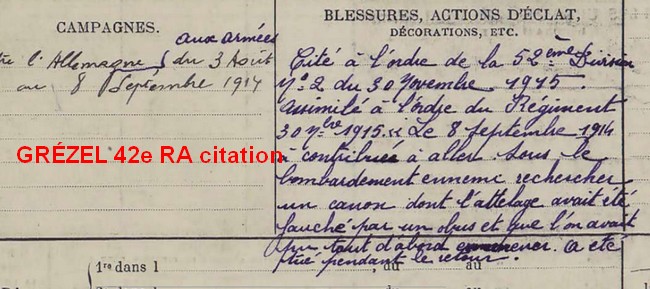 CAMPAGNES.
aux armées
tre l'Allemagne du 3 Août
au 8 Septembre 1914
GRÉZEL 42e RA citation
BLESSURES, ACTIONS D'ÉCLAT,
DÉCORATIONS, ETC.
Cité à l'ordre de la 52ème Division
N° 2 du 30 Novembre 1915.
Assimilé à l'ordre du Régiment
30 9bre 1915. « Le 8 Septembre 1914
à contribuée à aller sous le
bombardement ennemi rechercher
un canon dont l'attelage avait été
fauché par un obus et que l'on avait
pu tout d'abord. a été
tué pendant le retour.
1re dans l
du
au
2e dans l